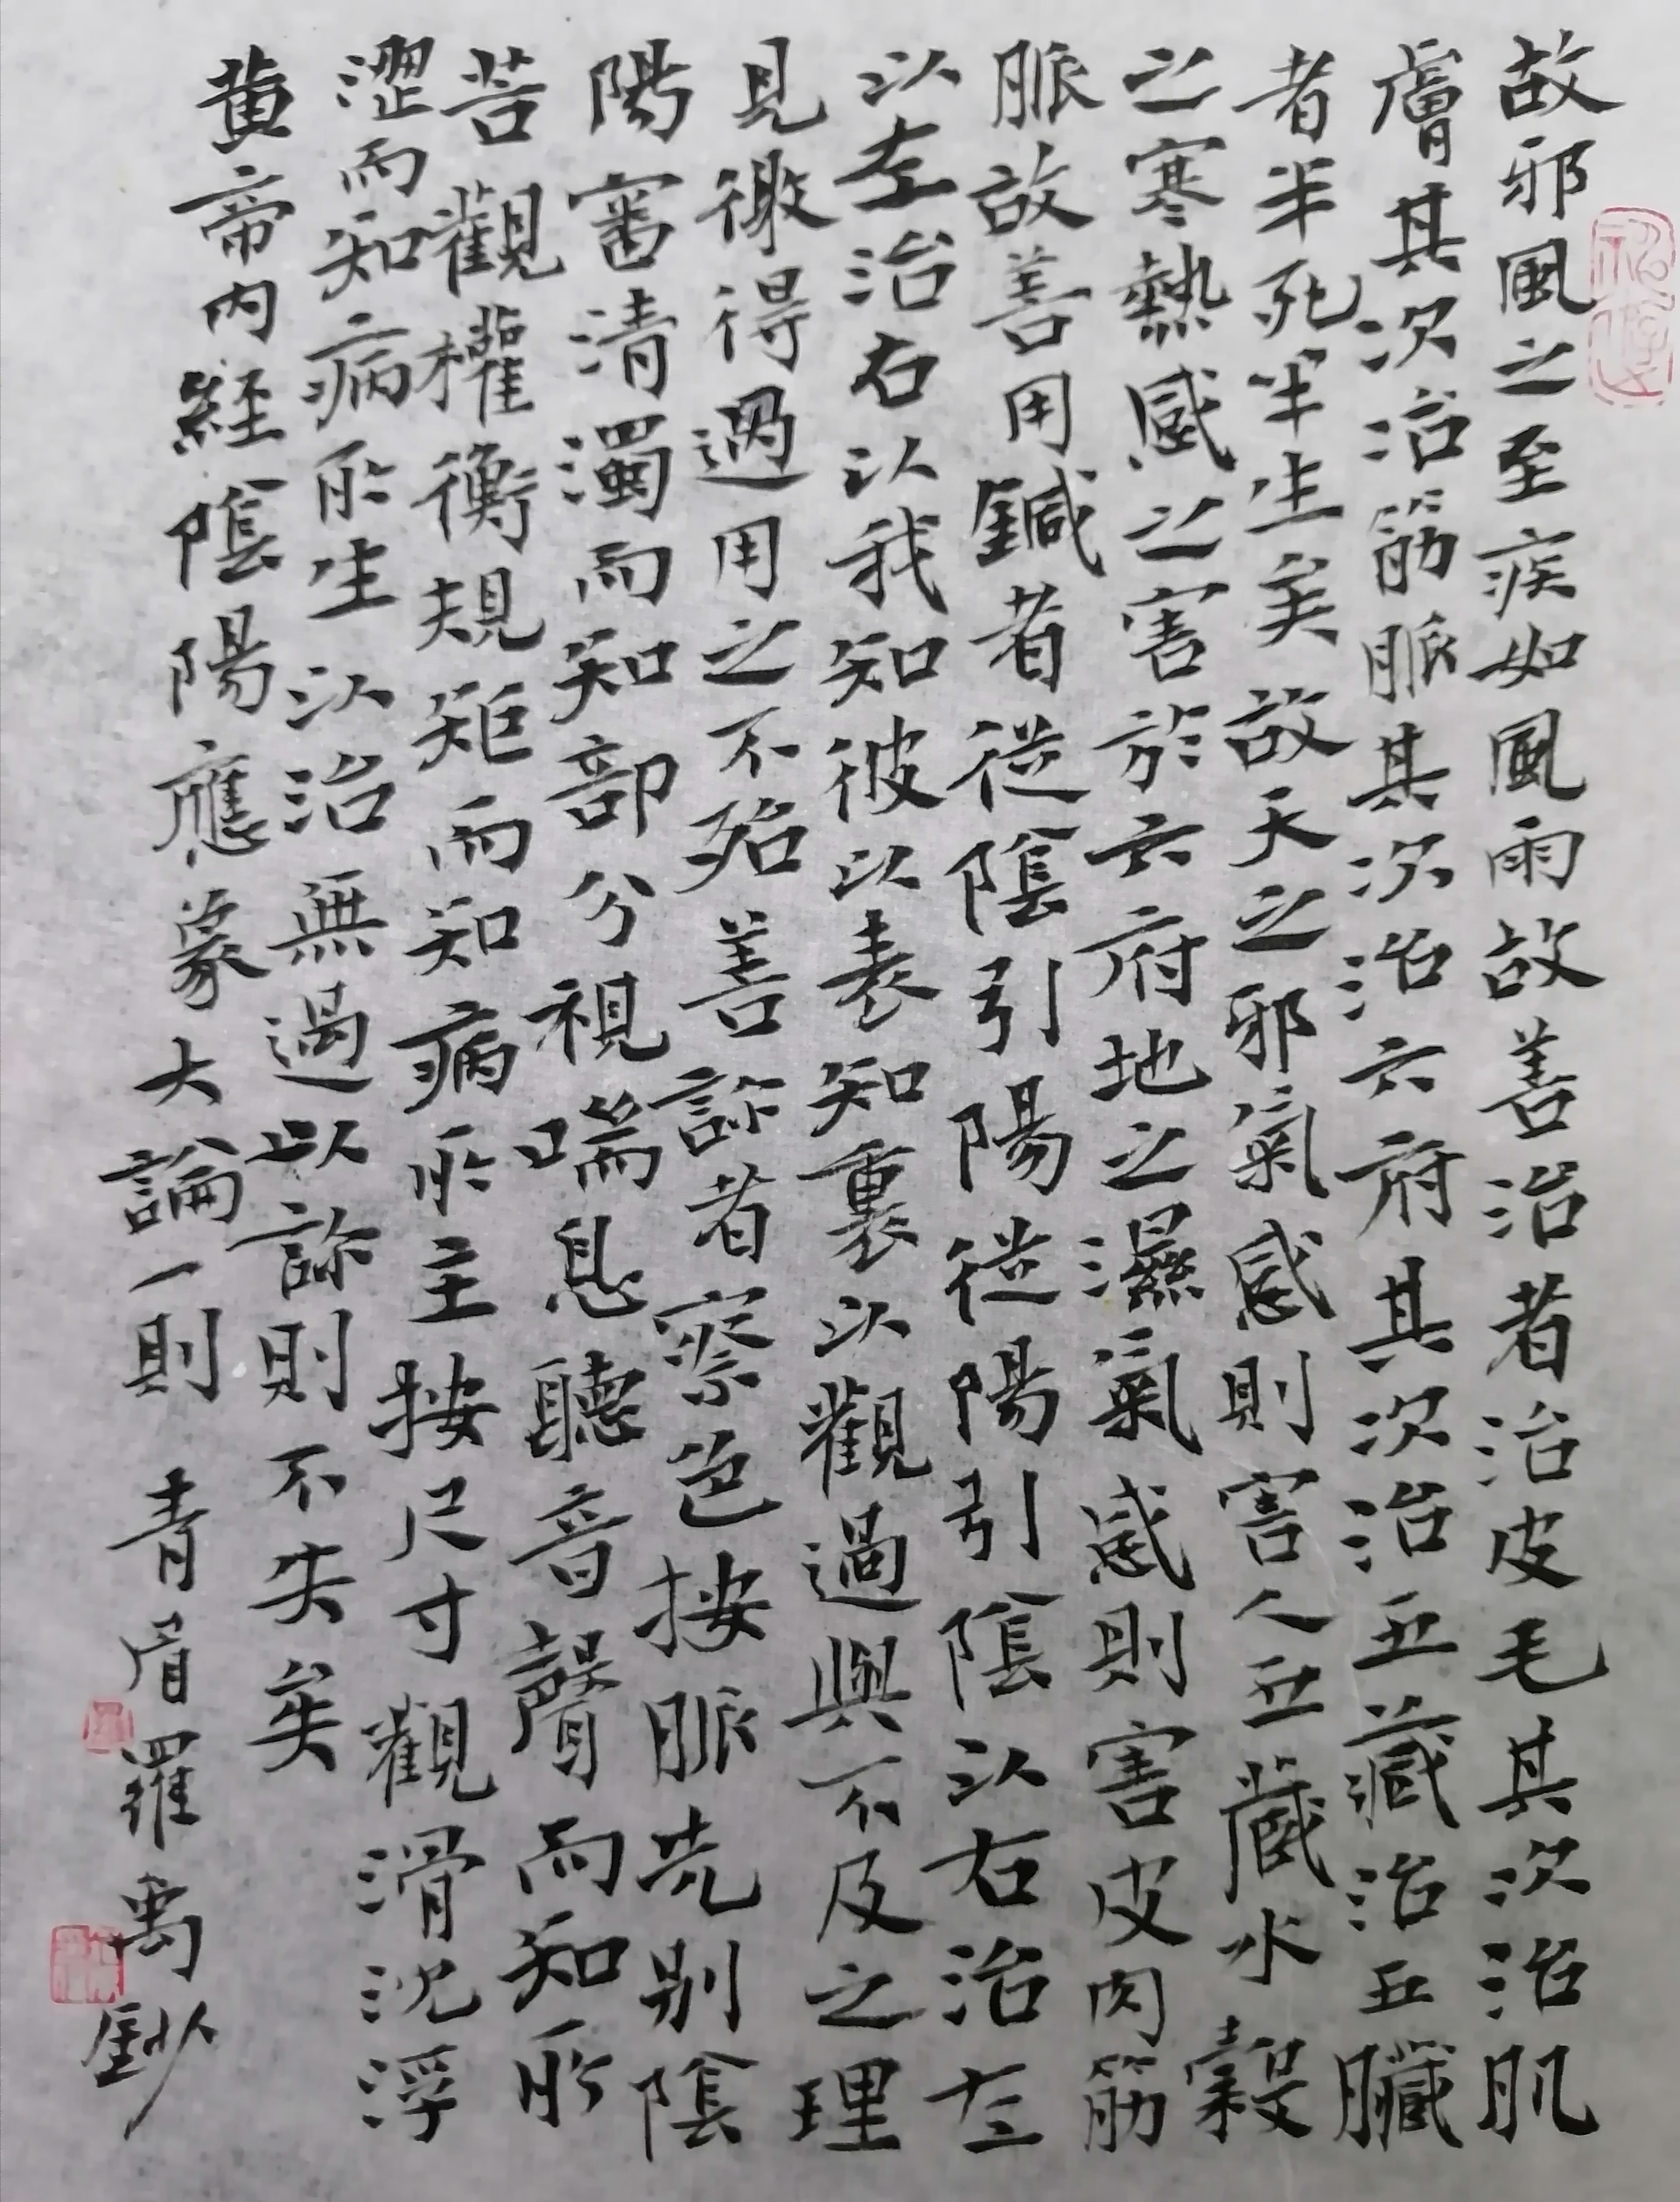 故邪風之至疾如風雨故善治者治皮毛其次治肌
膚其次治筋脈其次治六府其次治五藏治五臟
者半死半生矣故天之邪氣感則害人五藏水穀
之寒熱感之害於六府地之濕氣感則害皮肉筋
脈故善用鍼者從陰引陽從陽引陰以右治左
以左治右以我知彼以表知裏以觀過與不及之理
見微得過用之不殆善診者察色按脈先别陰
陽審清濁而知部分視喘息聽音聲而知所
苦觀權衡規矩而知病所主按尺寸觀滑沈浮
澀而知病所生以治無過以診則不失矣
黄帝内經陰陽應象大論一則 青眉羅禹鈔